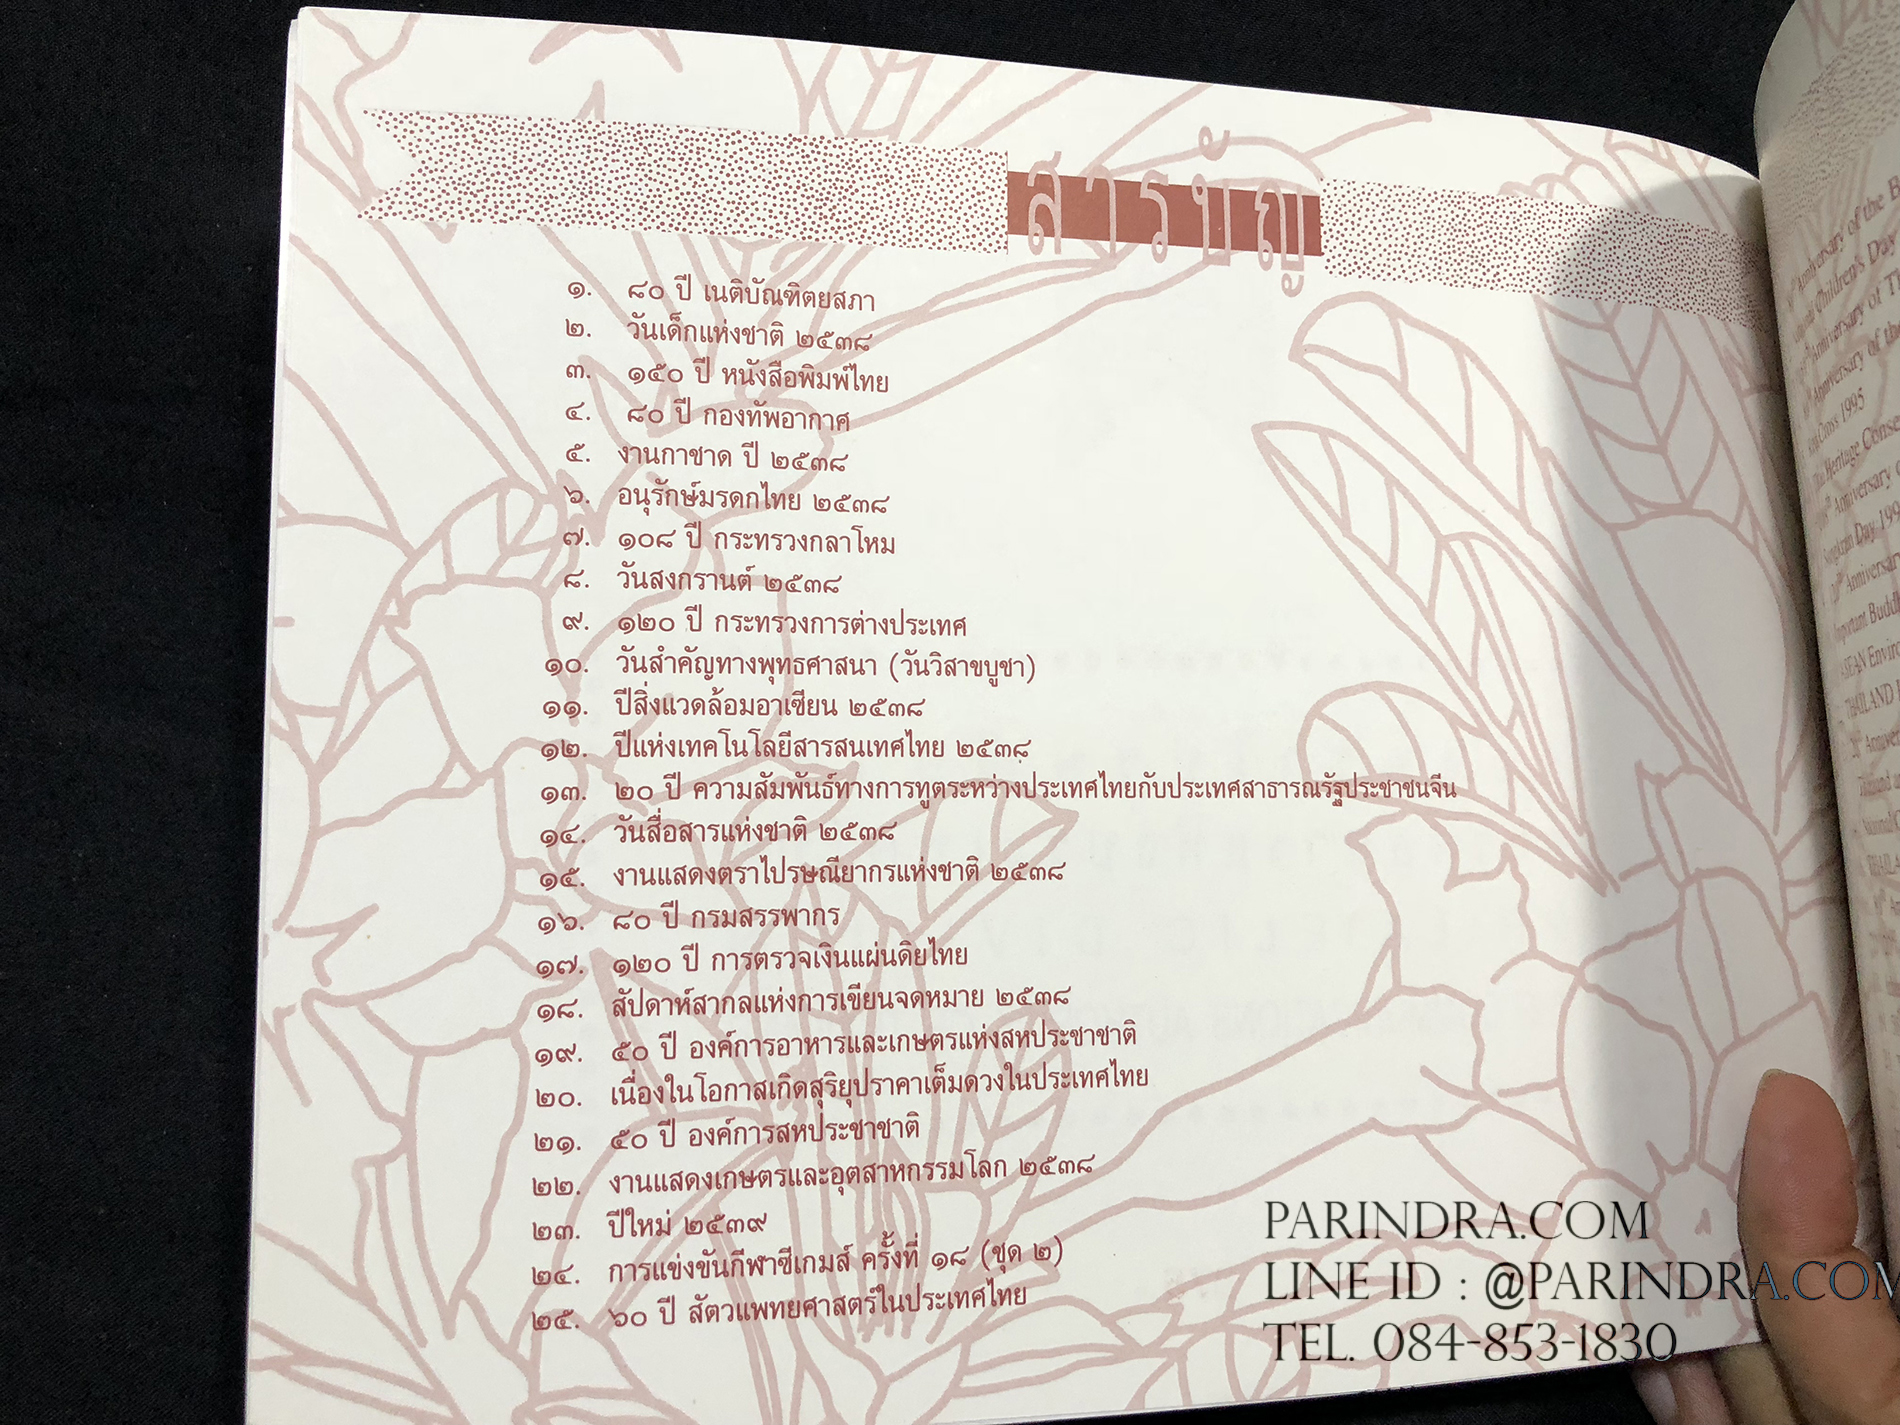 สารบัญ
๑. ๘๐ ปี เนติบัณฑิตยสภา
๒. วันเด็กแห่งชาติ ๒๕๓๘
๓. ๑๕๐ ปี หนังสือพิมพ์ไทย
๔. ๘๐ ปี กองทัพอากาศ
๕. งานกาชาด ปี ๒๕๓๘
๖. อนุรักษ์มรดกไทย ๒๕๓๘
๗. ๑๐๘ ปี กระทรวงกลาโหม
๘. วันสงกรานต์ ๒๕๓๘
๙. ๑๒๐ ปี กระทรวงการต่างประเทศ
๑๐. วันสำคัญทางพุทธศาสนา (วันวิสาขบูชา)
๑๑. ปีสิ่งแวดล้อมอาเซียน ๒๕๓๘
๑๒. ปีแห่งเทคโนโลยีสารสนเทศไทย ๒๕๓๘
๑๓. ๒๐ ปี ความสัมพันธ์ทางการทูตระหว่างประเทศไทยกับประเทศสาธารณรัฐประชาชนจีน
๑๔. วันสื่อสารแห่งชาติ ๒๕๓๘
๑๕. งานแสดงตราไปรษณียากรแห่งชาติ ๒๕๓๘
๑๖. ๘๐ ปี กรมสรรพากร
๑๗. ๑๒๐ ปี การตรวจเงินแผ่นดินไทย
๑๘. สัปดาห์สากลแห่งการเขียนจดหมาย ๒๕๓๘
๑๙. ๕๐ ปี องค์การอาหารและเกษตรแห่งสหประชาชาติ
๒๐. เนื่องในโอกาสเกิดสุริยุปราคาเต็มดวงในประเทศไทย
๒๑. ๕๐ ปี องค์การสหประชาชาติ
๒๒. งานแสดงเกษตรและอุตสาหกรรมโลก ๒๕๓๘
๒๓. ปีใหม่ ๒๕๓๙
๒๔. การแข่งขันกีฬาซีเกมส์ ครั้งที่ ๑๘ (ชุด ๒)
๒๕. ๖๐ ปี สัตวแพทยศาสตร์ในประเทศไทย
Anniversary of the B
Children's Day
Anniversary of T
Anniversary of the
Cross 1995
Heritage Conse
Anniversary
Day 199
Anniversar
Important Buddh
ASEAN Enviro
THAILAND
PARINDRA.COM
LINE ID : @PARINDRA.COM
TEL. 084-853-1830